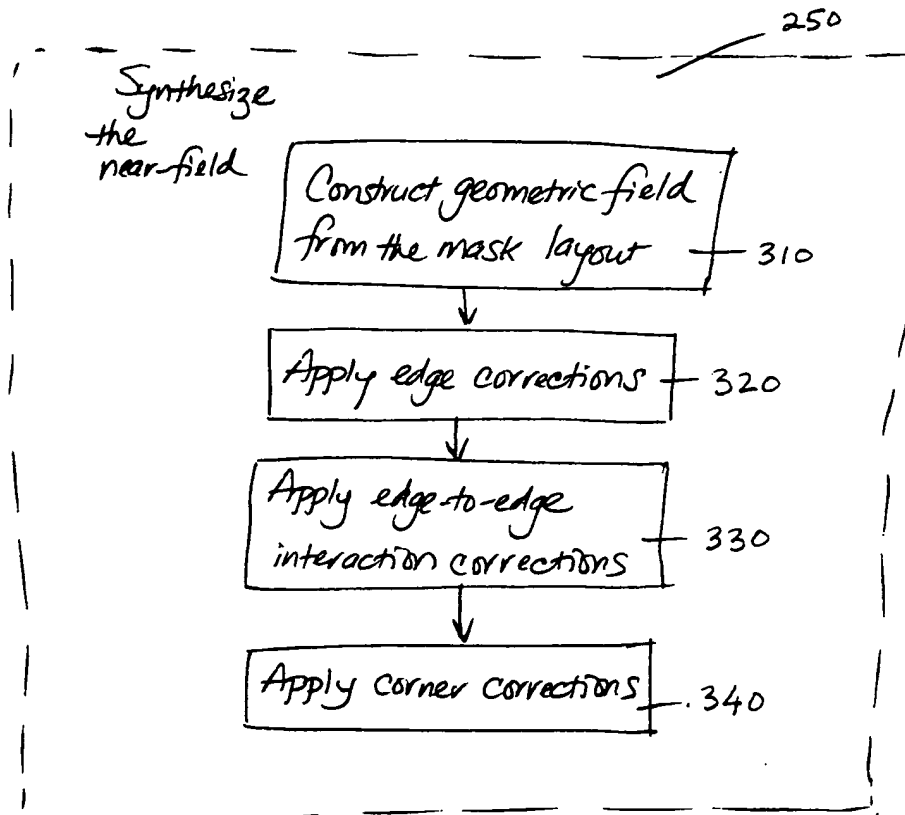 250
Synthesize
the
near-field
Construct geometric field
from the mask layout
310
Apply edge corrections
320
Apply edge-to-edge
interaction corrections
330
Apply corner corrections
340